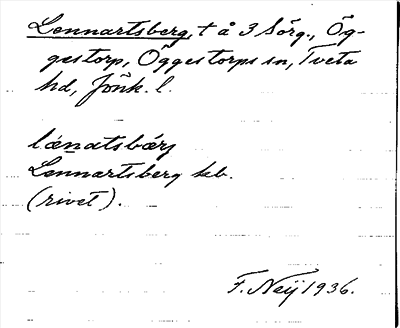 Lennartsberg, t å 3 Sörg., Ög-
gestorp, Öggestorps sn, Tveta
hd, Jönk. l.
lænatsbærj
Lennartsberg kb.
(rivet).
F. Neij 1936.